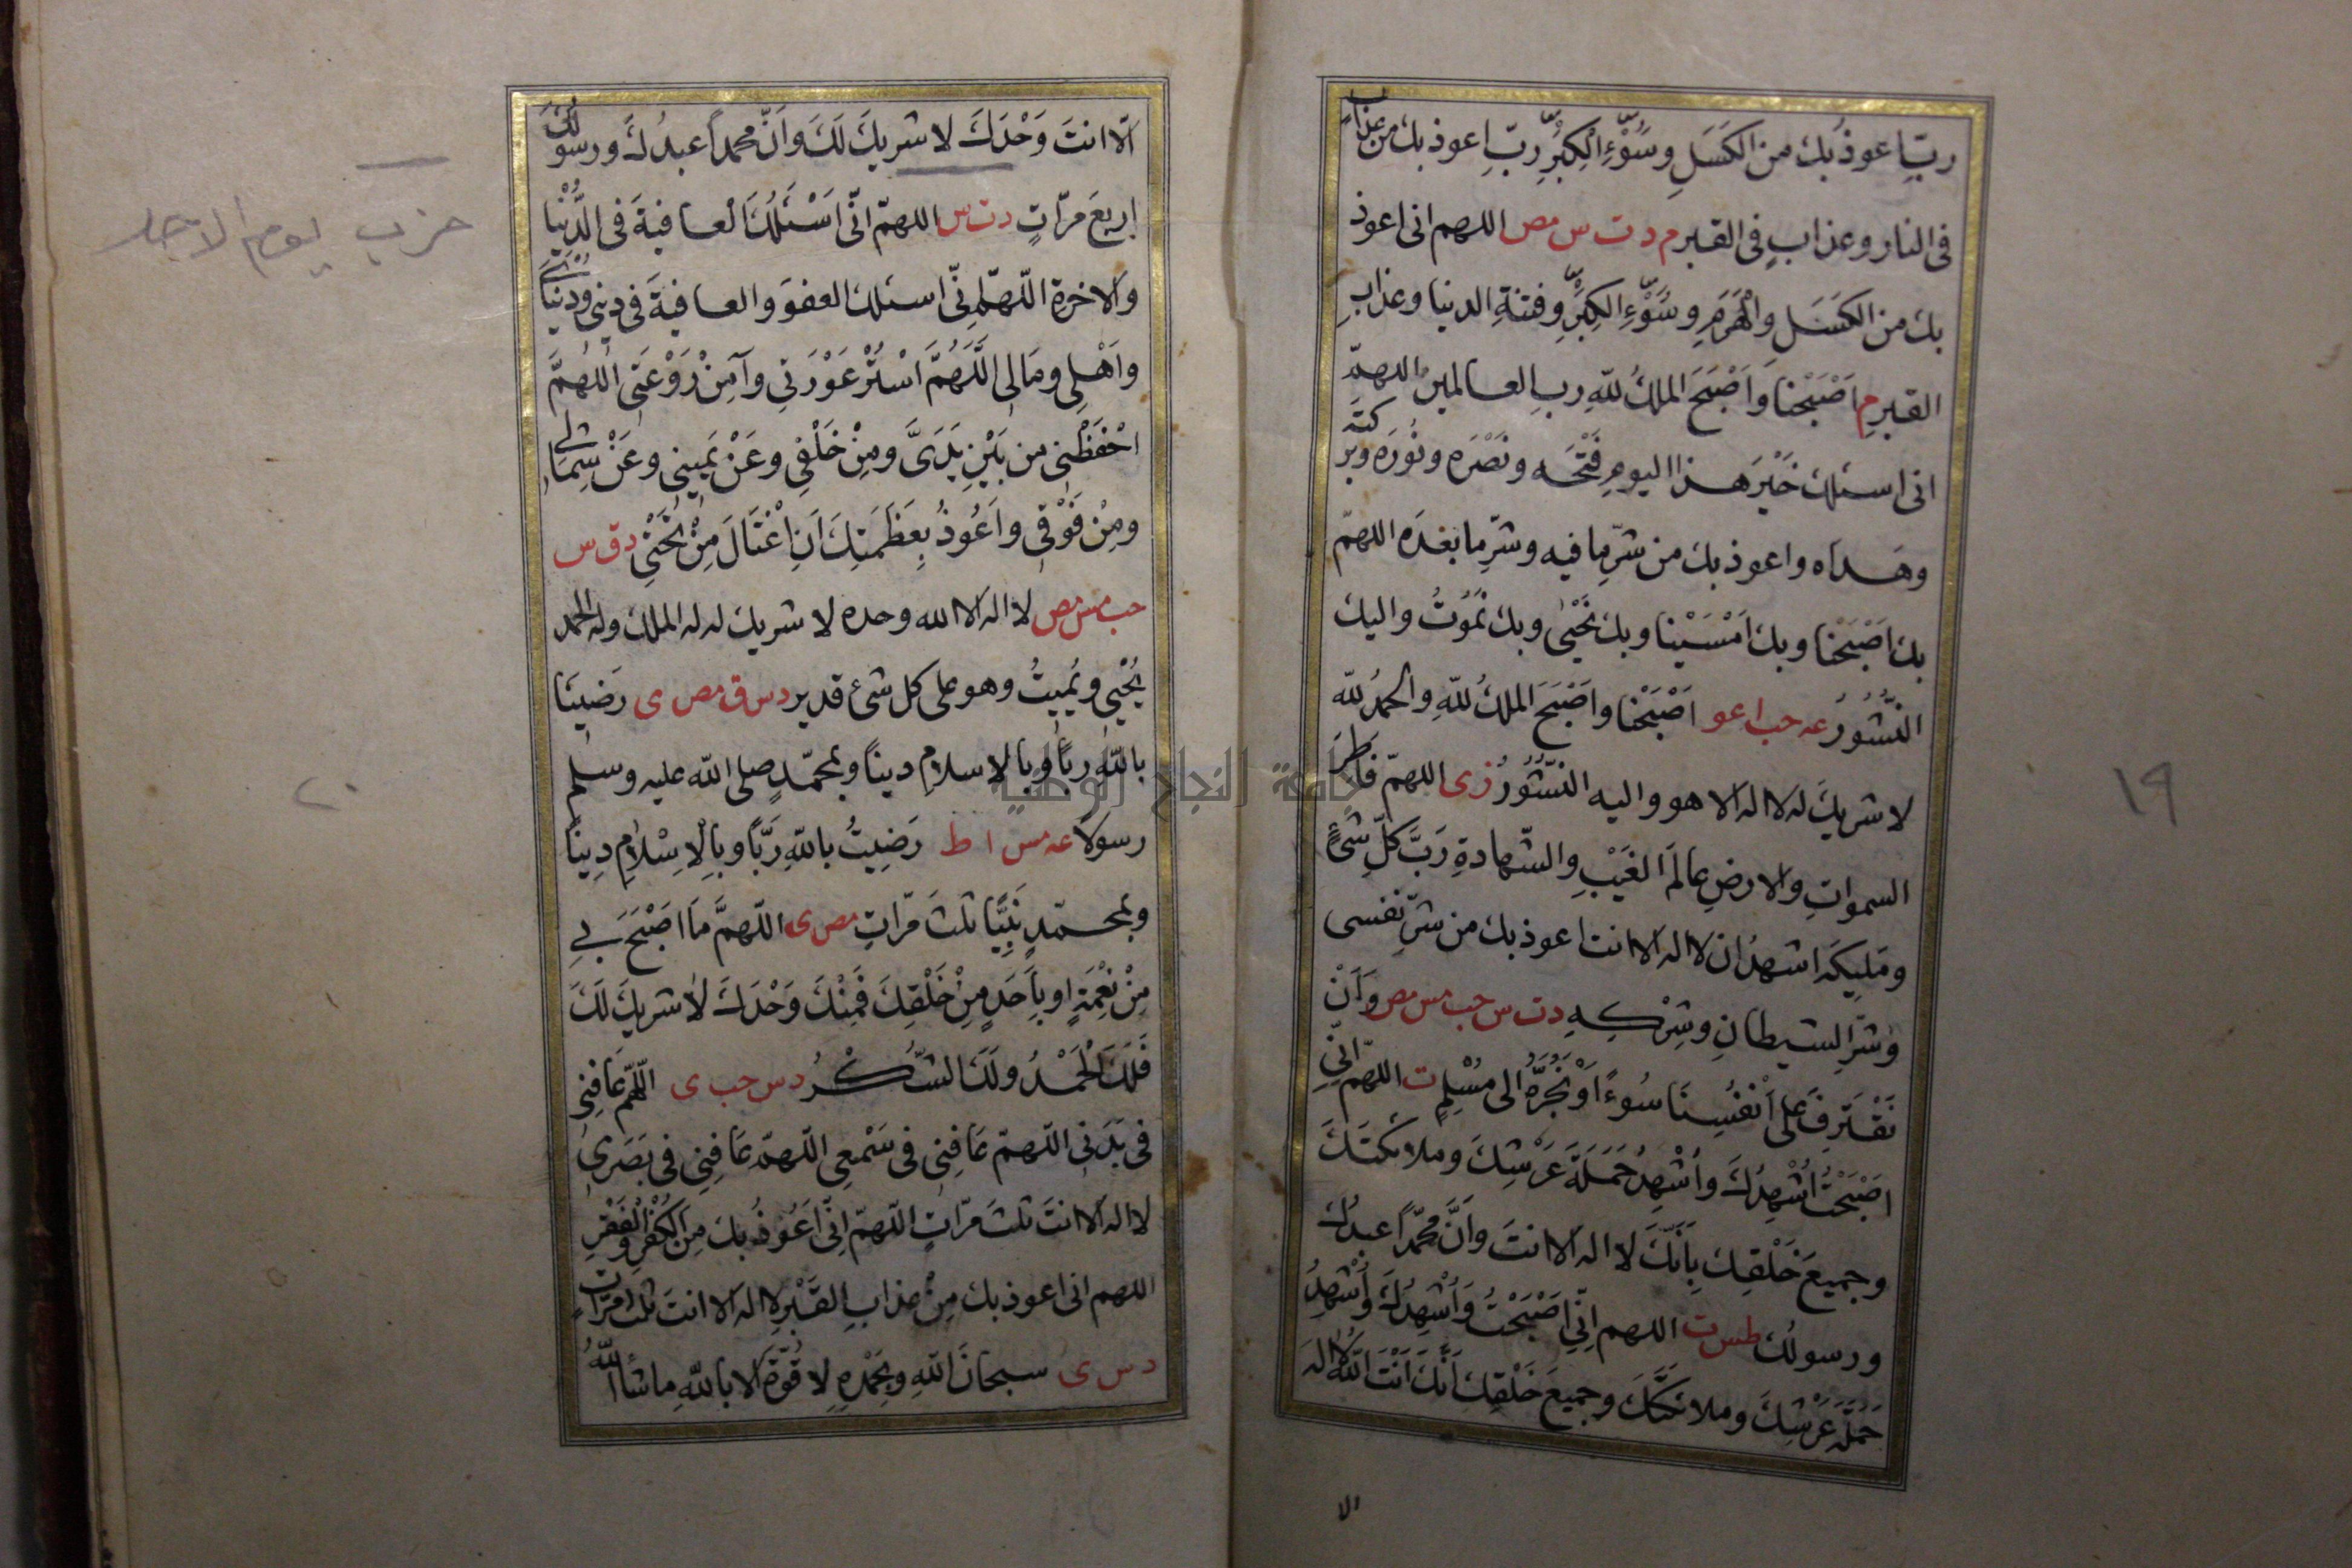 ربِّ اعوذُ بك من الكَسَلِ وسُوْءِ الكِبَرِ ربِّ اعوذ بك من عذابٍ
فى النار وعذابٍ فى القبر م د ت س مص اللهم انى اعوذ
بك من الكَسَلِ والْهَرَمِ وسُوْءِ الكِبَرِ وفتنةِ الدنيا وعذابِ
القبر م اَصْبَحْنا وَاَصْبَحَ الملكُ للهِ ربِ العالمين اللهمّ
انى اسئلك خَيْرَ هذا اليومِ فَتْحَه ونَصْرَه ونُورَه وبركتَه
وهداه واعوذ بك من شرِّ ما فيه وشرِّ ما بعْدَه اللهمّ
بك اَصْبَحْنا وبك اَمْسَيْنا وبك نَحْيٰى وبك نَمُوْتُ واليك
النُّشُوْرُ عه حب ا عو اَصْبَحْنا واَصْبَحَ الملكُ للّهِ والحمدُ للّه
لا شريكَ له لا اله الا هو واليه النُّشُوْرُ ز ى اللهمّ فاطرَ
السمواتِ والارضِ عالمَ الغَيْبِ والشهادةِ رَبَّ كلِّ شَىْءٍ
ومَلِيكَه اشهدُ ان لا اله الا انت اعوذ بك من شرِّ نفسى
وشرِّ الشيطانِ وشِرْكِهِ د ت س حب مس مص وَاَنْ
نَقْتَرِفَ على اَنْفُسِنَا سُوءًا اَوْ نَجُرَّهُ الى مُسْلِمٍ ت اللهمّ انّى
اَصْبَحْتُ اُشْهِدُكَ واُشْهِدُ حَمَلَةَ عَرْشِكَ وملائكتَكَ
وجميعَ خَلْقِكَ بِاَنَّكَ لا اله الا انتَ وَاَنَّ محمّدًا عبدُك
ورسولُك طس ت اللهم اِنِّى اَصْبَحْتُ وَاُشْهِدُكَ واُشْهِدُ
حَمَلَةَ عَرْشِكَ وملائكتَكَ وجميعَ خَلْقِكَ اَنَّكَ اَنْتَ اللّهُ لا اله
الا
١٩
الّا انتَ وَحْدَكَ لا شريكَ لَكَ وانّ محمداً عبدُكَ ورسولُكَ
اربعَ مرّاتٍ د ت س اللهمّ انّى اَسْئَلُكَ الْعافيةَ فى الدُّنْيا
والاخرةِ اللّهمّ انّى اسئلك العفوَ والعافيةَ فى دينى ودُنْيَاىَ
واَهْلى ومَالى اللَّهُمَّ اسْتُرْ عَوْرَتى وآمِنْ رَوْعَتى اللهُمَّ
احْفَظْنى من بَيْنِ يَدَىَّ ومِنْ خَلْفى وعَنْ يَمينى وعَنْ شِمالى
ومِنْ فَوْقى واَعُوذُ بِعَظَمَتِكَ اَن اُغْتَالَ مِنْ تَحْتى د ق س
حب مس مص لا اله الا الله وحده لا شريك له له الملك وله الحمد
يُحْيي ويُميتُ وهو على كل شئ قدير د س ق مص ى رَضِينَا
باللهِ ربّاً وبالاسلامِ ديناً وبمحمّدٍ صلى الله عليه وسلم
رسولًا عه مس ا ط رَضِيتُ باللهِ رَبًّا وبالْاِسْلامِ دِينًا
وبمحمّدٍ نَبِيًّا ثلثَ مرّاتٍ مص ى اللّهمَّ ما اَصْبَحَ بى
مِنْ نِعْمَةٍ او بِاَحَدٍ مِنْ خَلْقِكَ فَمِنْكَ وَحْدَكَ لا شريكَ لَكَ
فَلَكَ الْحَمْدُ ولَكَ الشُّكْرُ د س حب ى اللّهمّ عَافِنى
فى بَدَنى اللّهمّ عَافِنى فى سَمْعى اللّهمّ عَافِنى فى بَصَرى
لا اله الا انتَ ثلثَ مرّاتٍ اللّهمّ اِنّى اَعُوذُ بك مِنَ الكُفْرِ والْفَقْرِ
اللهم انى اعوذ بك مِنْ عذابِ القَبْرِ لا اله الا انتَ ثلثَ مرّاتٍ
د س ى سبحانَ اللهِ وبِحَمْدِهِ لا قُوَّةَ الا باللّهِ ما شاءَ اللّهُ
حزب يوم الاحد
٢٠
جامعة النجاح الوطنية